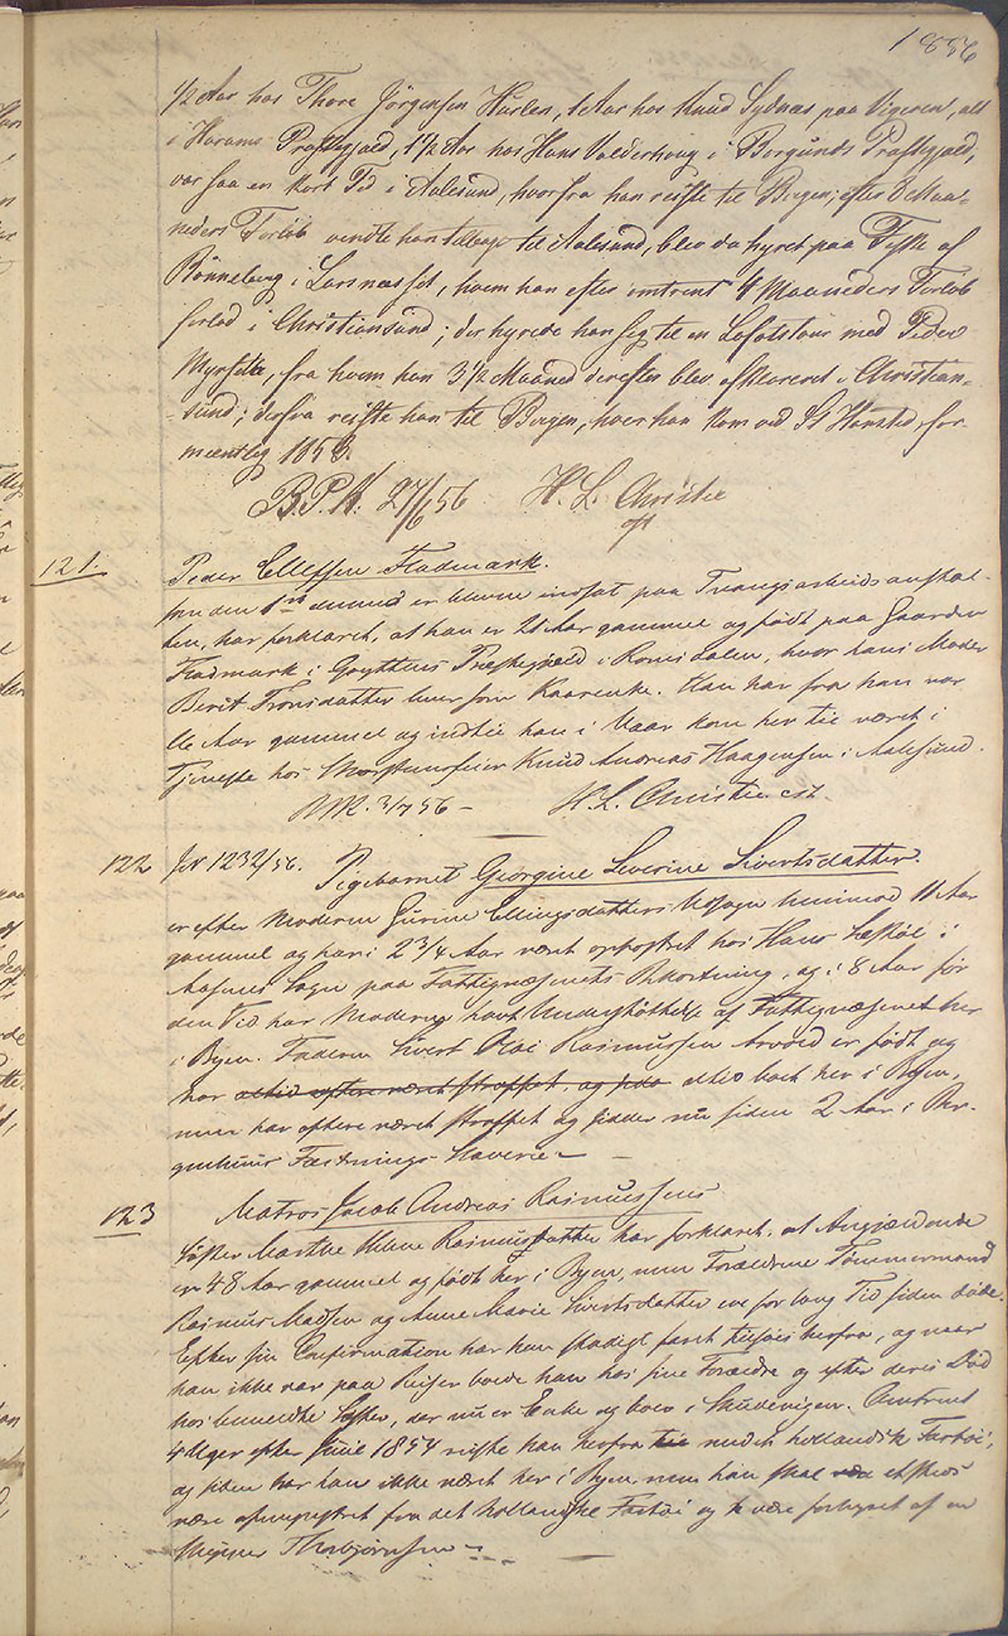 1856
1/2 Aar hos Thore Jörgensen Hurlen, 1 Aar hos Knud Sydnæs paa Vigeren, alt
i Harams Præstegjæld, 1 1/2 Aar hos Hans Valderhoug i Borgunds Præstegjæld,
var saa en kort Tid i Aalesund, hvorfra han reiste til Bergen; efter 8 Maa-
neders Forløb vendte han tilbage til Aalesund, blev da hyret paa Fiske af
Rønneberg i Larsnæsset, hvem han efter omtrent 4 Maaneders Forløb
forlod i Christiansund; der hyrede han sig til en Lofotstour med Peder
Myrsæta, fra hvem han 3 1/2 Maaned derefter blev afklareret i Christian-
sund; derfra reiste han til Bergen, hvor han kom ved St Hanstid, for-
mentlig 1853.
B.P.K. 27/6 56 H. L. Christie
cst
121. Peder Ellefsen Flademark.
som den 1ste ds. er bleven indsat paa Tvangsarbeidsanstal-
ten, har forklaret, at han er 21 Aar gammel og født paa Gaarden
Flademark i Gryttens Præstegjæld i Romsdalen, hvor hans Moder
Berit Tronsdatter lever som Kaarenke. Han har fra han var
11 Aar gammel og indtil han i Vaar kom her til været i
Tjeneste hos Knud Andreas Haagensen i Aalesund.
BPK. 3/7 56 - H. L. Christie cst.
122 JN 1232/56. Pigebarnet Georgine Severine Sivertsdatter.
er efter Moderen Gurine Ellingsdatters Udsagn henimod 11 Aar
gammel og har i 2 3/4 Aar været opfostret hos Hans i
Sogn paa Fattigvæsenets Bekostning, og i 8 Aar før
den Tid har Moderen havt Understøttelse af Fattigvæsenet her
i Byen. Faderen Sivert Olai Rasmussen Arvold er født og
har altid oftere været straffet, og altid boet her i Byen,
men har oftere været straffet og sidder nu siden 2 Aar i Ber-
genhuus Fæstnings Slaverie -
123 Matros Jacob Andreas Rasmussens
Søster Marthe Helene Rasmusdatter har forklaret, at Angjældende
er 48 Aar gammel og født her i Byen, men Forældrene Tømmermand
Rasmus Madsen og Anne Marie Sivertsdatter ere for lang Tid siden døde.
Efter sin Confirmation har han stadigt faret tilsøis herfra, og naar
han ikke var paa Reiser boede han hos sine Forældre og efter deres Død
hos bemeldte Søster, der nu er Enke og boer i Skudevigen. Omtrent
4 Uger efter Juul 1854 reiste han herfra til med et hollandsk Fartøi,
og siden har han ikke været her i Byen, men han skal etsteds
være afmønstret fra det hollandske Fartøi og være forhyret af en
Skipper Thorbjørnsen -